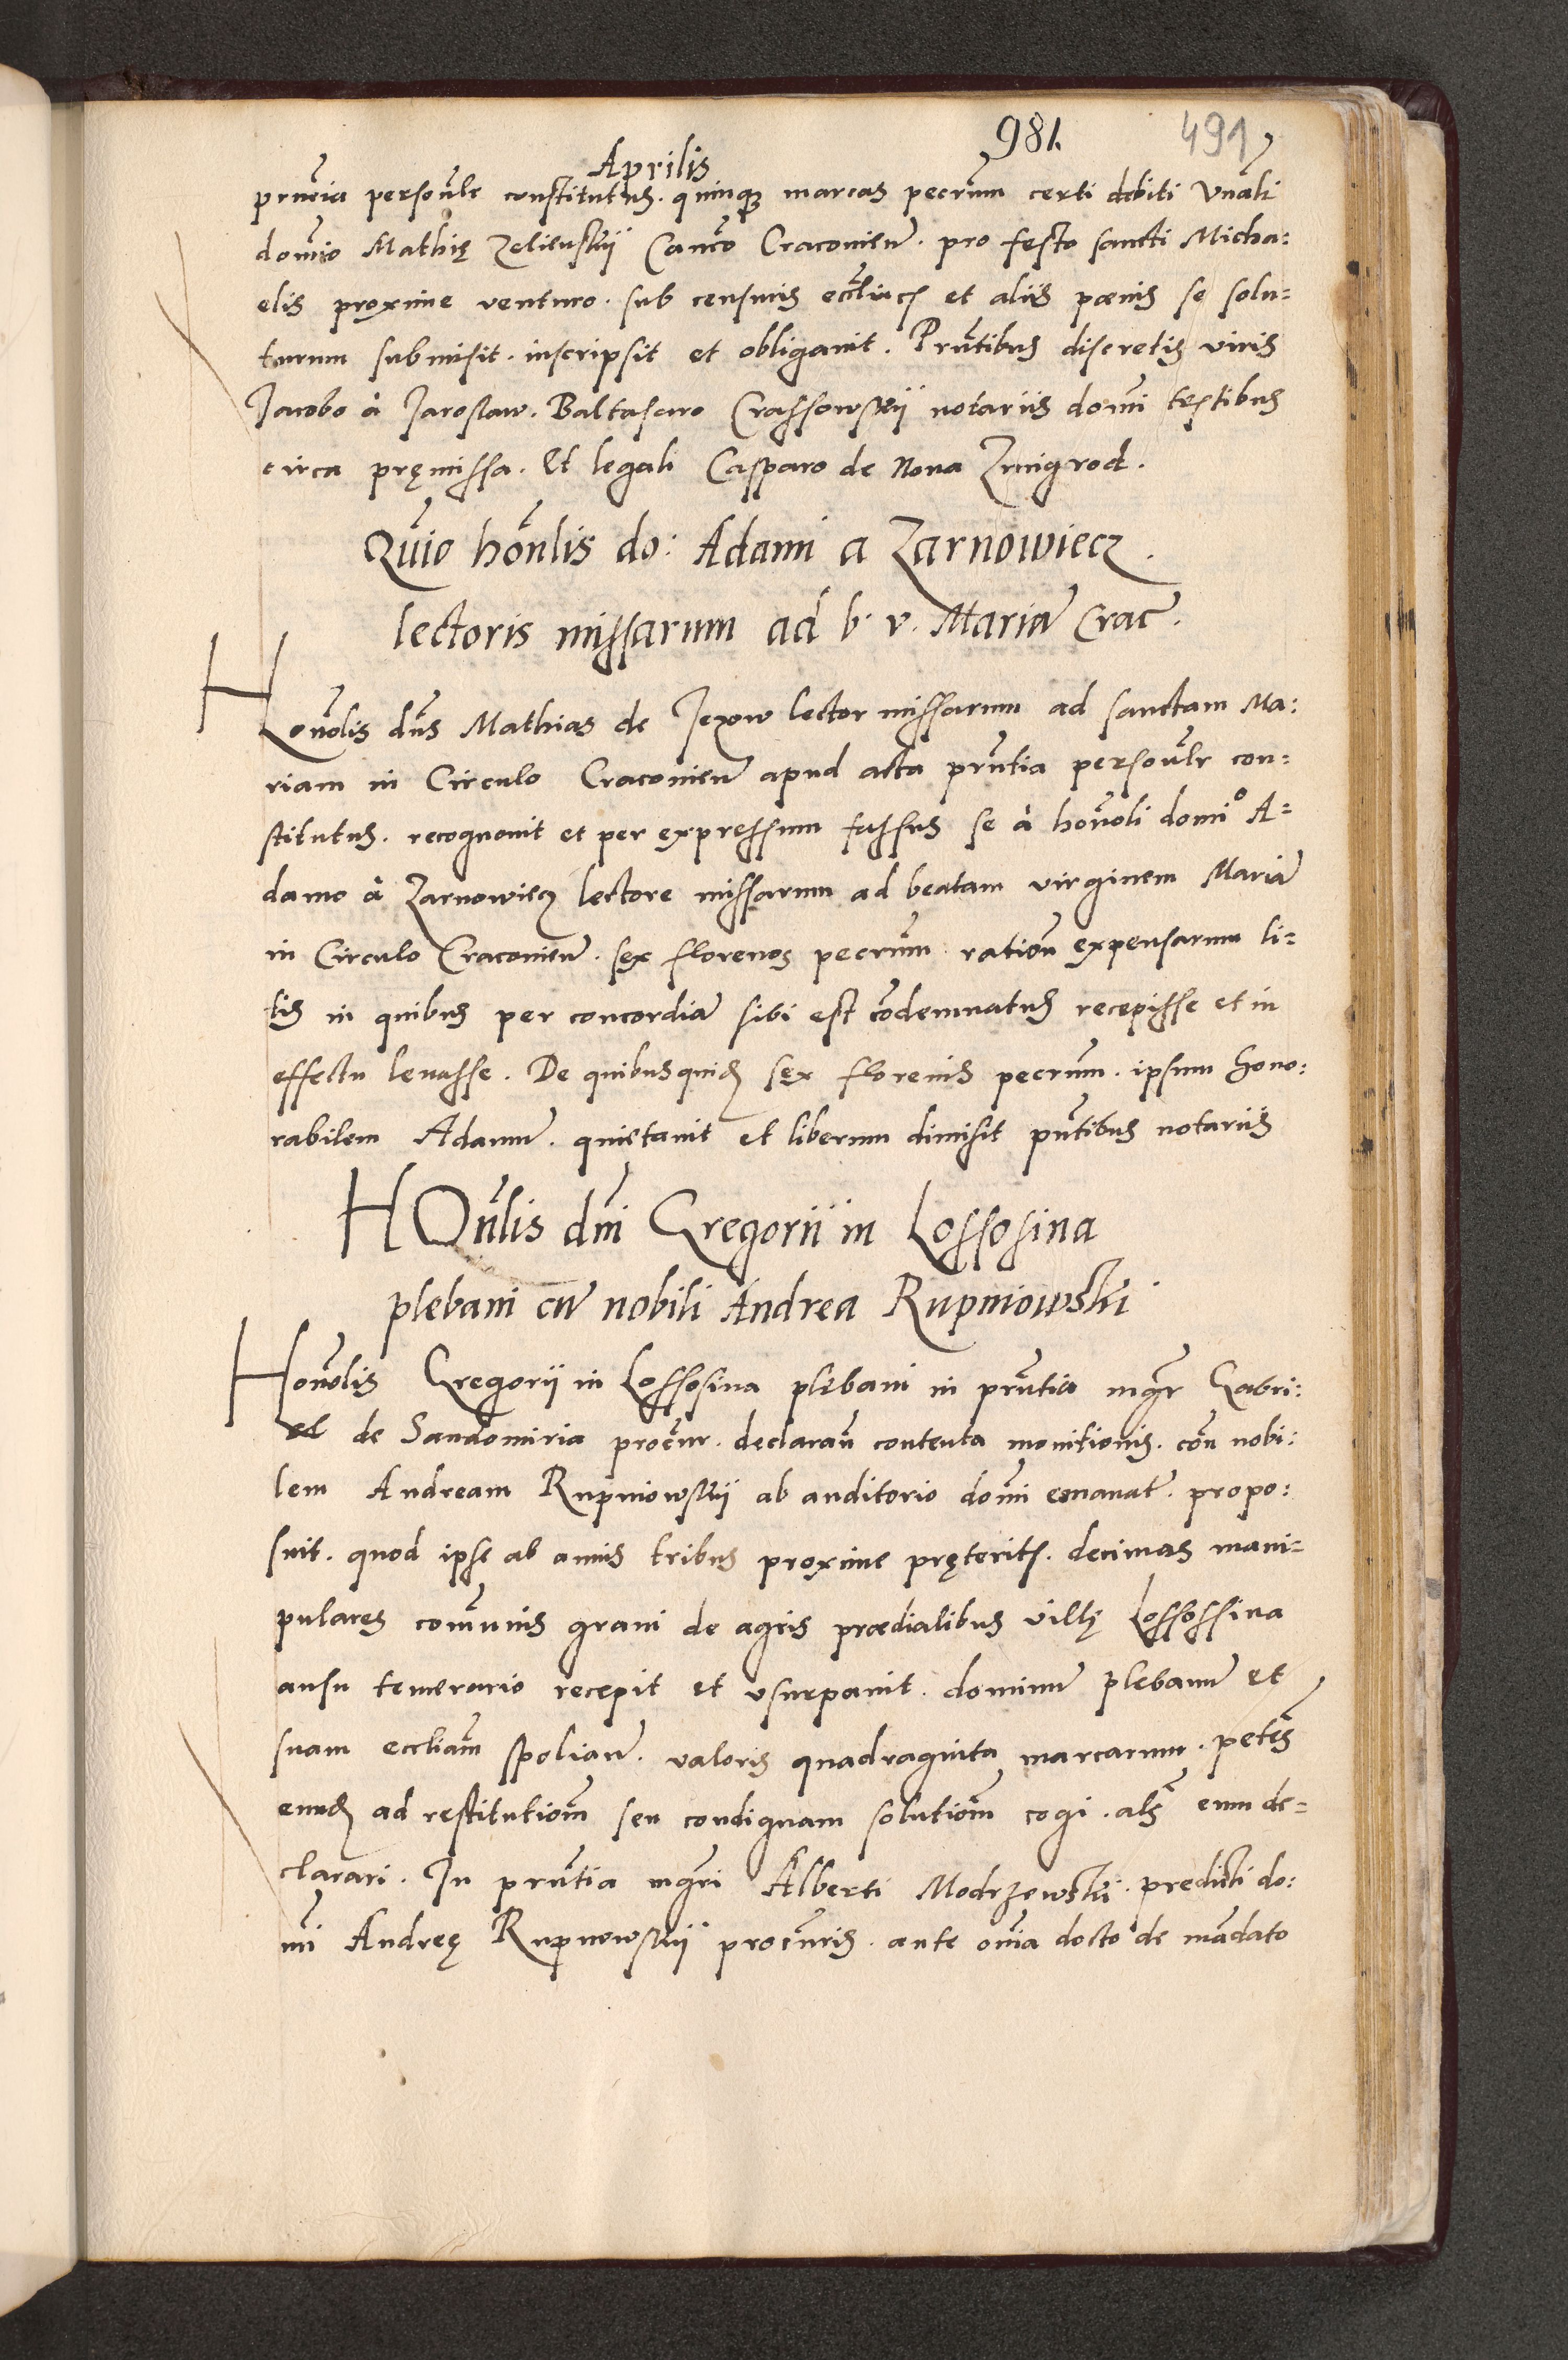 981. 491
Aprilis
prńcia persońlr constitutus. quinqꝫ marcas pecr̃um certi debiti Vnãli
domĩo Mathię Zelienskij Cańco Cracovieñ. pro festo sancti Micha:
elis proxime venturo. sub censuris eccl̃iacꝭ et aliis pœnis se solu-
turum submisit. inscripsit et obligavit. Prñtibus discretis viris
Jacobo à Jaroslaw. Baltasaro Crassowskij notariis domĩ testibus
circa pręmissa. Et legali Casparo de Nova Zmigrod.
Qũio hoñlis do: Adami a Zarnowiecz.
lectoris missarum ad b. v. Mariã Crac̃.
Hoñolis dñs Mathias de Jexow lector missarum ad sanctam Ma:
riam in Circulo Cracovieñ apud acta prñtia persoñlr con:
stitutus. recognovit et per expressum fassus se à hoñoli domiº A=
damo à Zarnowiecz lectore missarum ad beatam virginem Mariã
in Circulo Cracovieñ. sex florenos pecr̃um ratioñ expensarum li=
tis in quibus per concordiã sibi est cõdemnatus recepisse et in
effectu levasse. De quibusquidꝫ sex florenis pecr̃um. ipsum Hono:
rabilem Adamũ. quietavit et liberum dimisit pñtibus notariis
HOñlis dñi Gregorii in Lossosina
plebani cũ nobili Andrea Rupniowski
Hoñolis Gregorii in Lossosina plebani in prñtia mgr̃ Gabri:
el de Sandomiria procũr. declarañ contenta monitionis. coñ nobi:
lem Andream Rupniowskij ab auditorio domĩ emanat̃. propo:
suit. quod ipse ab annis tribus proxime pręteritꝭ. decimas mani=
pulares com̃unis grani de agris prædialibus villę Lossossina
ausu temerario recepit et vsurpavit. dominũ plebanũ et
suam eccl̃iam spoliañ. valoris quadraginta marcarum. petẽs
eundꝫ ad restitutiom̃ seu condignam solutiom̃ cogi. als̃ eum de=
clarari. In prñtia mgr̃i Alberti Modrzewski predicti do:
mĩ Andreę Rupnowskij procũris. ante om̃ia docto de mãdato